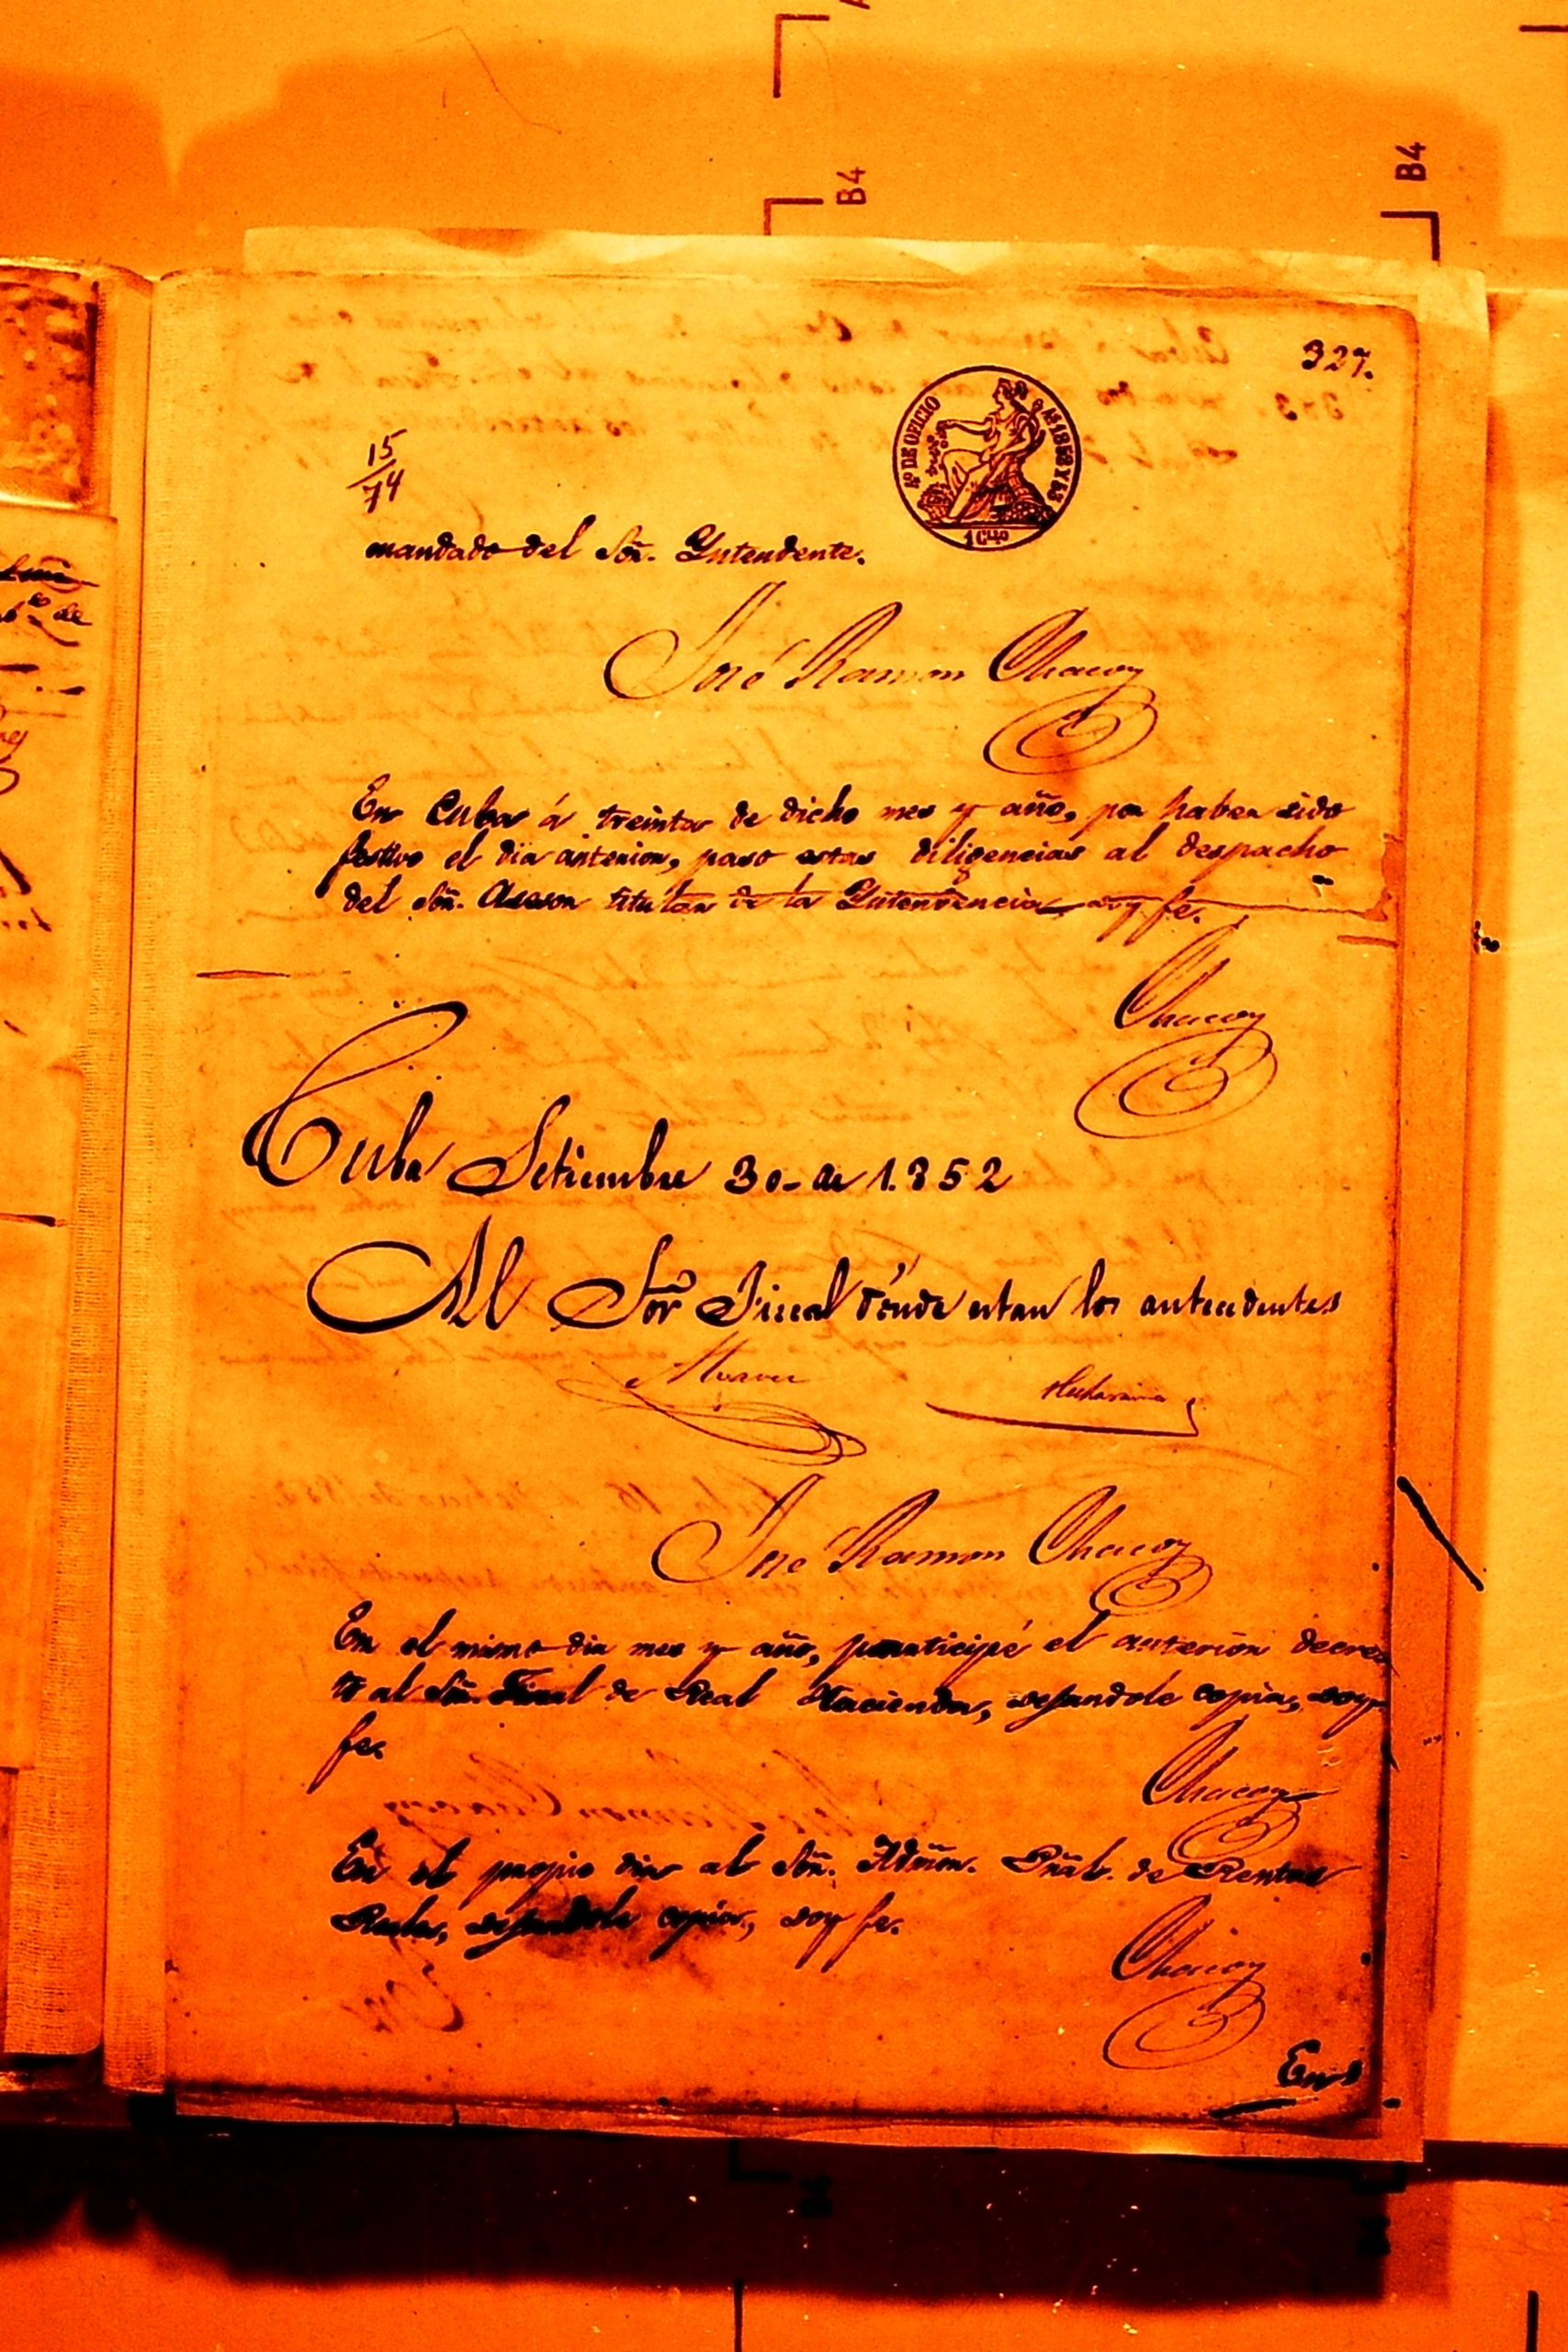 B4
B4
327.
4º DE OFICIO
Aˢ 1852 Y 53
1 Cllo
15
74
mandado del Sôr. Yntendente.
José Ramon Chacon
En Cuba á treinta de dicho mes y año, por haber sido
festivo el dia anterior, paso estas diligencias al despacho
del Sôr. Asesor titular de la Yntendencia doy fe.
Chacon
Cuba Setiembre 30 - de 1.852
Al Sõr Fiscal dónde estan los antecedentes
José Ramon Chacon
En el mismo dia mes y año, participé el anterior decre
to al Sôr. Fiscal de Real Hacienda, dejandole copia, doy
fe.
Chacon
En el propio dia al Sôr. Admôn. Prâl. de Rentas
Reales, dejandole copia, doy fe.
Chacon